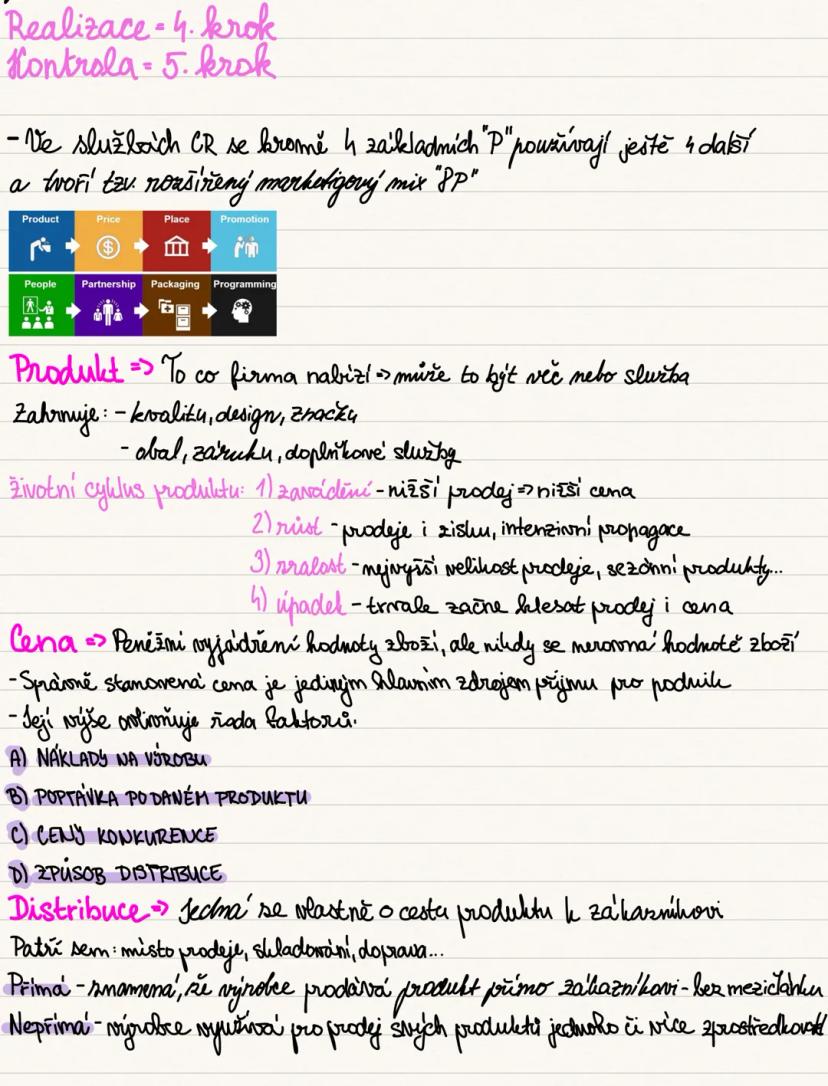 Realizace = 4. krok
Kontrola = 5. krok
- Ve službách CR se kromě 4 základních "P" používají ještě 4 další
a tvoří tzv. rozšířený marketigový mix "8P"
Product Price Place Promotion
People Partnership Packaging Programming
Produkt => To co firma nabízí => může to být věc nebo služba
Zahrnuje: - kvalitu, design, značku
- obal, záruku, doplňkové služby
životní cyklus produktu: 1) zavádění - nižší prodej => nižší cena
2) růst - prodeje i zisku, intenzivní propagace
3) zralost - nejvyšší velikost prodeje, sezónní produkty...
4) úpadek - trvale začne klesat prodej i cena
Cena => Peněžní vyjádření hodnoty zboží, ale nikdy se nerovná hodnotě zboží
- Správně stanovená cena je jediným hlavním zdrojem příjmu pro podnik
- Její výše ovlivňuje řada faktorů.
A) NÁKLADY NA VÝROBU
B) POPTÁVKA PO DANÉM PRODUKTU
C) CENY KONKURENCE
D) ZPŮSOB DISTRIBUCE
Distribuce => Jedná se vlastně o cestu produktu k zákazníkovi
Patří sem: místo prodeje, skladování, doprava...
Přímá - znamená, že výrobce prodává produkt přímo zákazníkovi - bez mezičlánku
Nepřímá - výrobce využívá pro prodej svých produktů jednoho či více